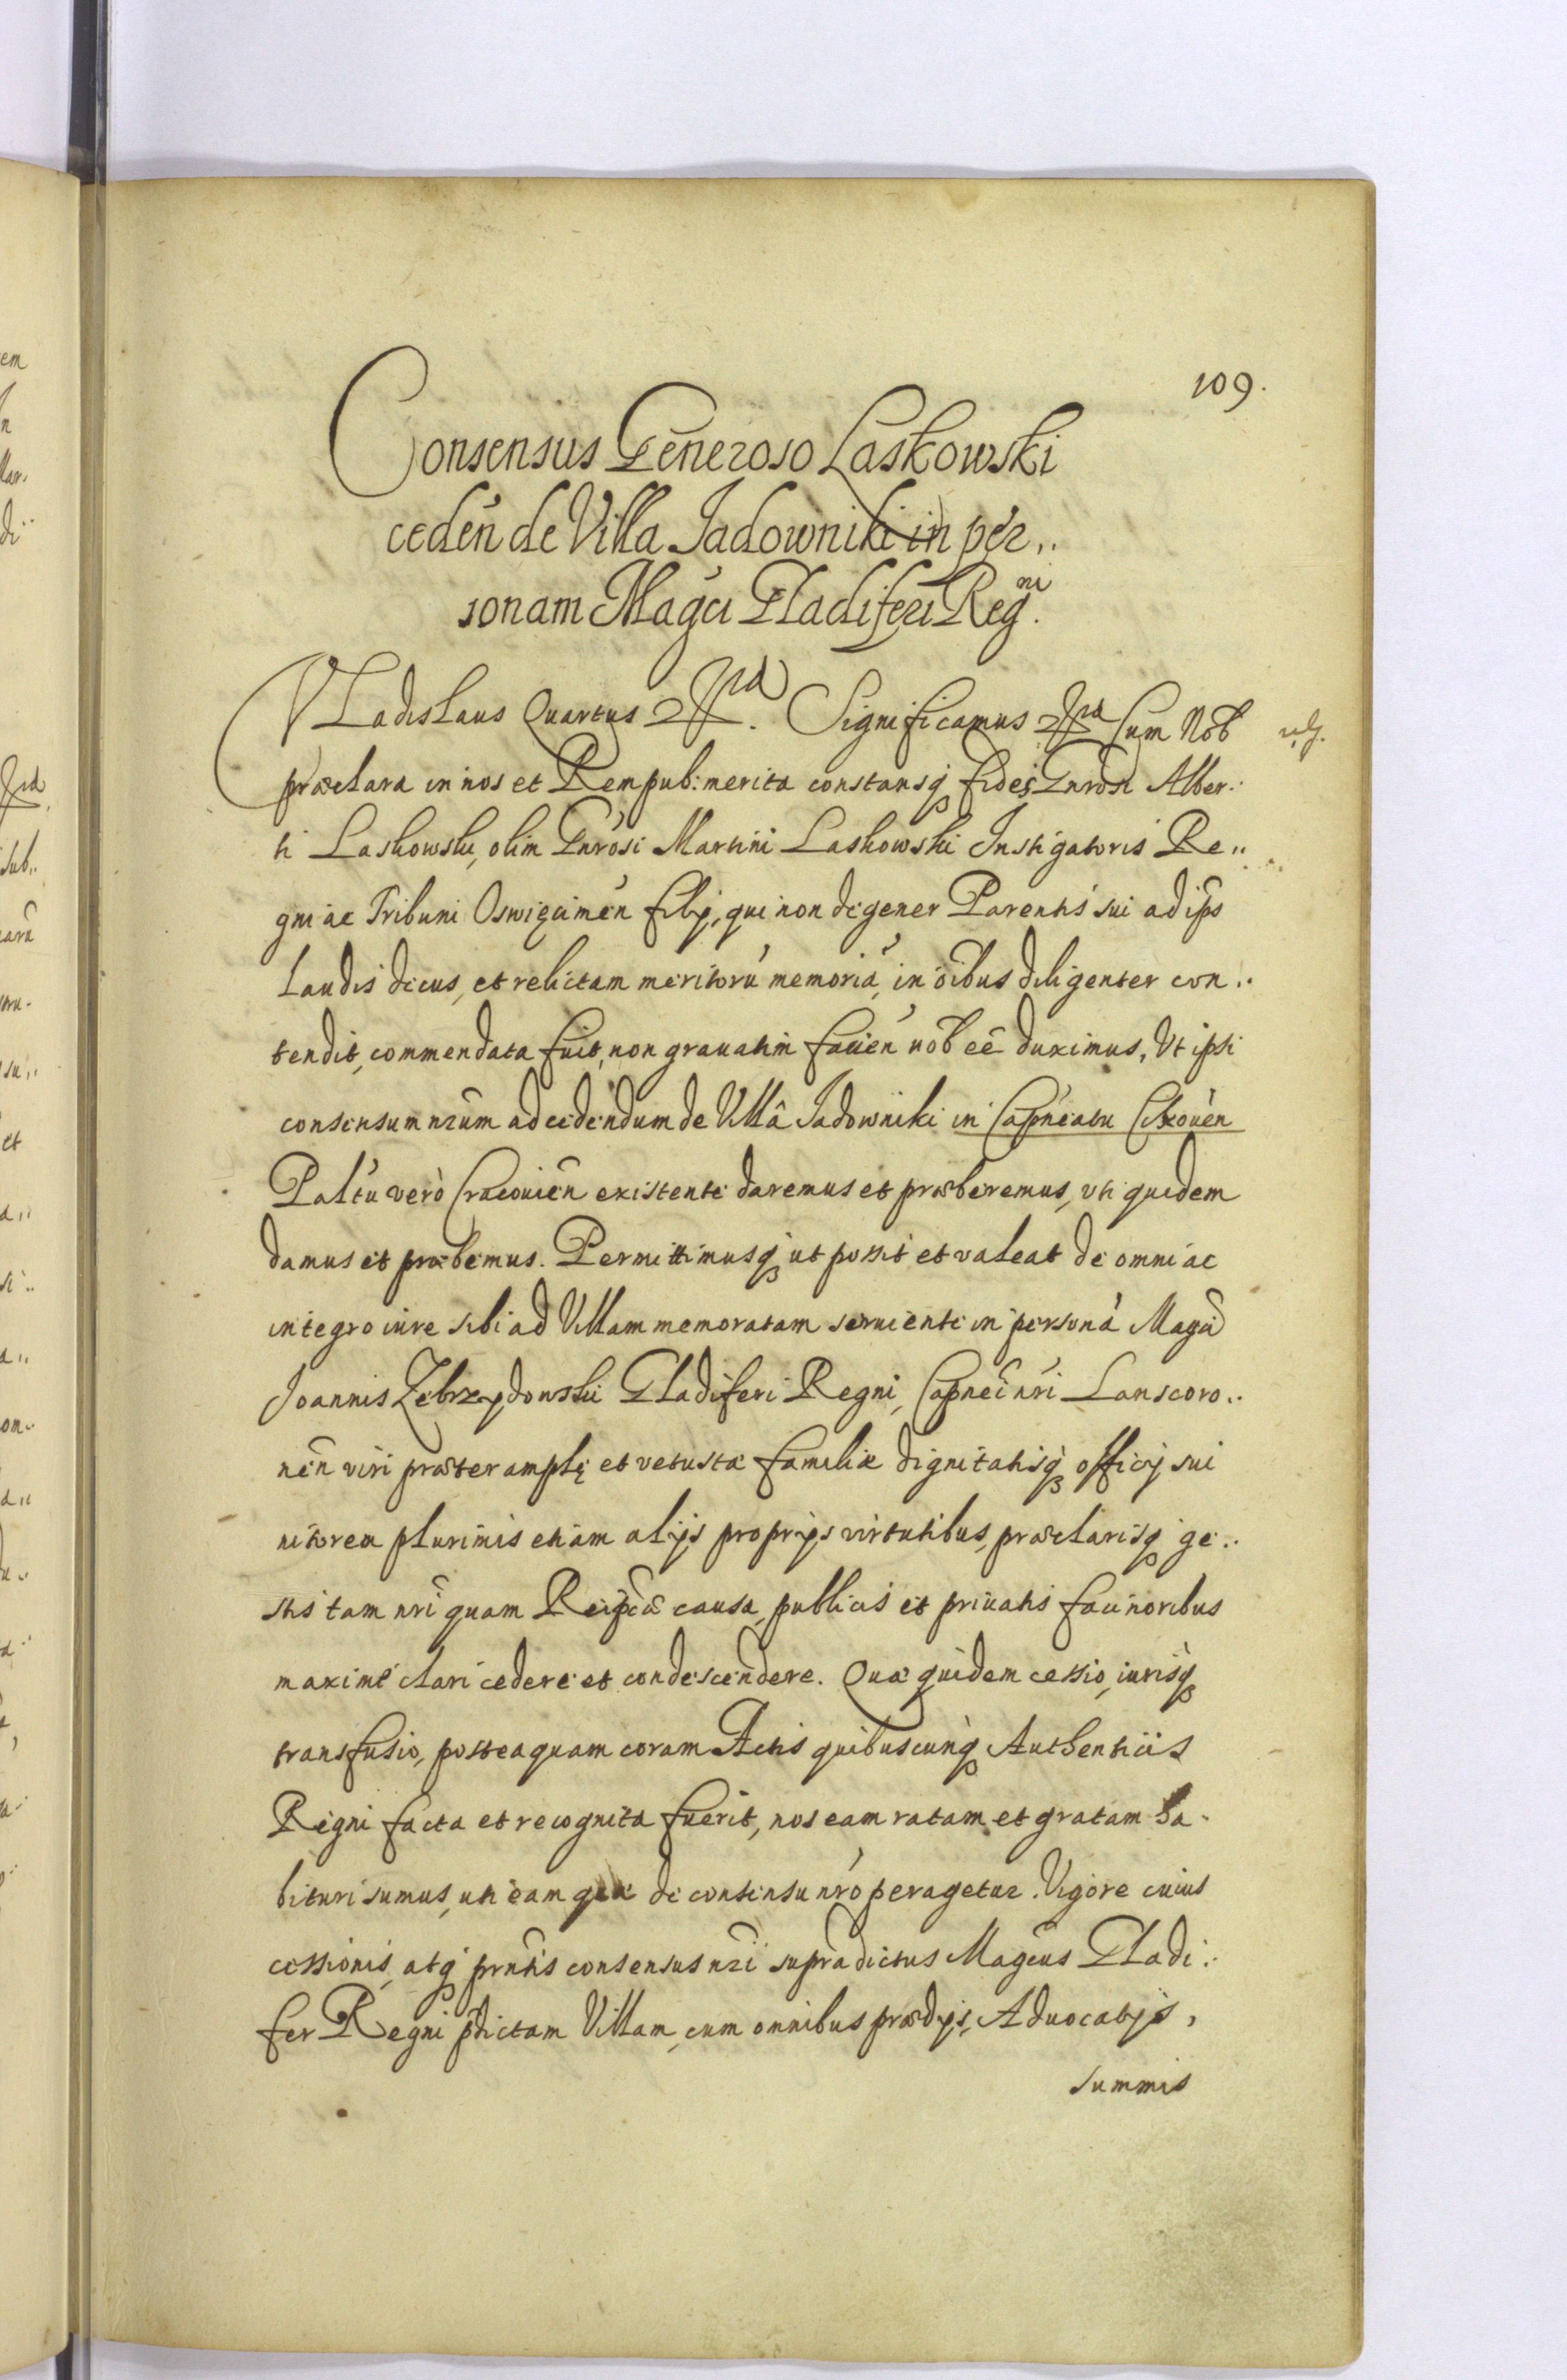 109.
Consensus Generoso Laskowski
cedeń de Villa Jadowniki in per..
sonam Magci Gladiferi Regni.
Vladislaus Quartus etc. Significamus etc. Cum Nob
præclara in nos et Rempub: merita constansq fides Gnrosi Alber..
ti Laskowski, olim Gnrosi Martini Laskowski Instigatoris Re..
gni ac Tribuni Oswięcimeń filij, qui non degener Parentis sui ad ips
laudis decus, et relictam meritorū memoriā, in oibus diligenter con..
tendit, commendata fuit, non grauatim facień nob eē duximus, Vt ipsi
consensum nrum ad cedendum de Villâ Jadowniki in Capneatu Czchouen
Paltu verò Cracouien existente daremus et præberemus, vti quidem
damus et præbemus. Permittimusq ut possit et valeat de omni ac
integro iure sibi ad Villam memoratam seruiente in personā Magci
Joannis Zebrzydowski Gladiferi Regni, Capnei nri Lanscoro..
nen viri præter amplę et vetustæ familiæ dignitatisq officij sui
nitorem plurimis etiam alijs proprijs virtutibus, præclarisq ge..
stis tam nri quam Reipcæ causa, publicis et priuatis facinoribus
maximè clari cedere et condescendere. Quæ quidem cessio, iurisq
transfusio, posteaquam coram Actis quibuscunq Authenticis
Regni facta et recognita fuerit, nos eam ratam et gratam ha..
bituri sumus, uti eam quæ de consensu nro peragetur. Vigore cuius
cessionis, atq prntis consensus nri supradictus Magcus Gladi..
fer Regni pdictam Villam, cum omnibus prædijs, Aduocatijs,
summis